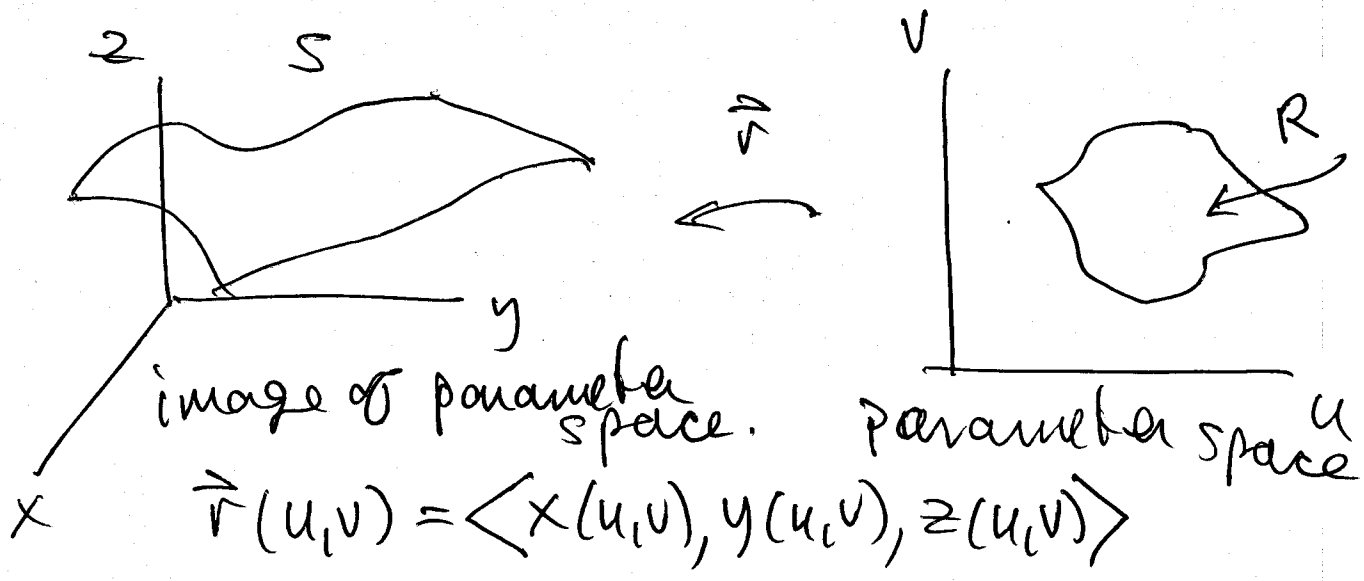 z S
V
R
r⃗
y
image of parameter
space.
u
parameter space
x
r⃗(u,v) = <x(u,v), y(u,v), z(u,v)>